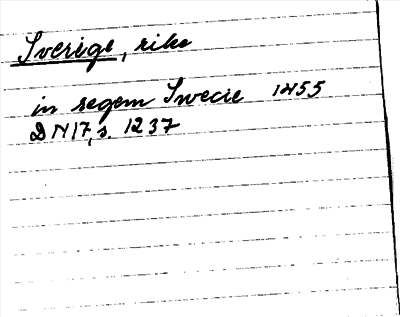 Sverige, rike
in regem Swecie 1455
DN17, s. 1237